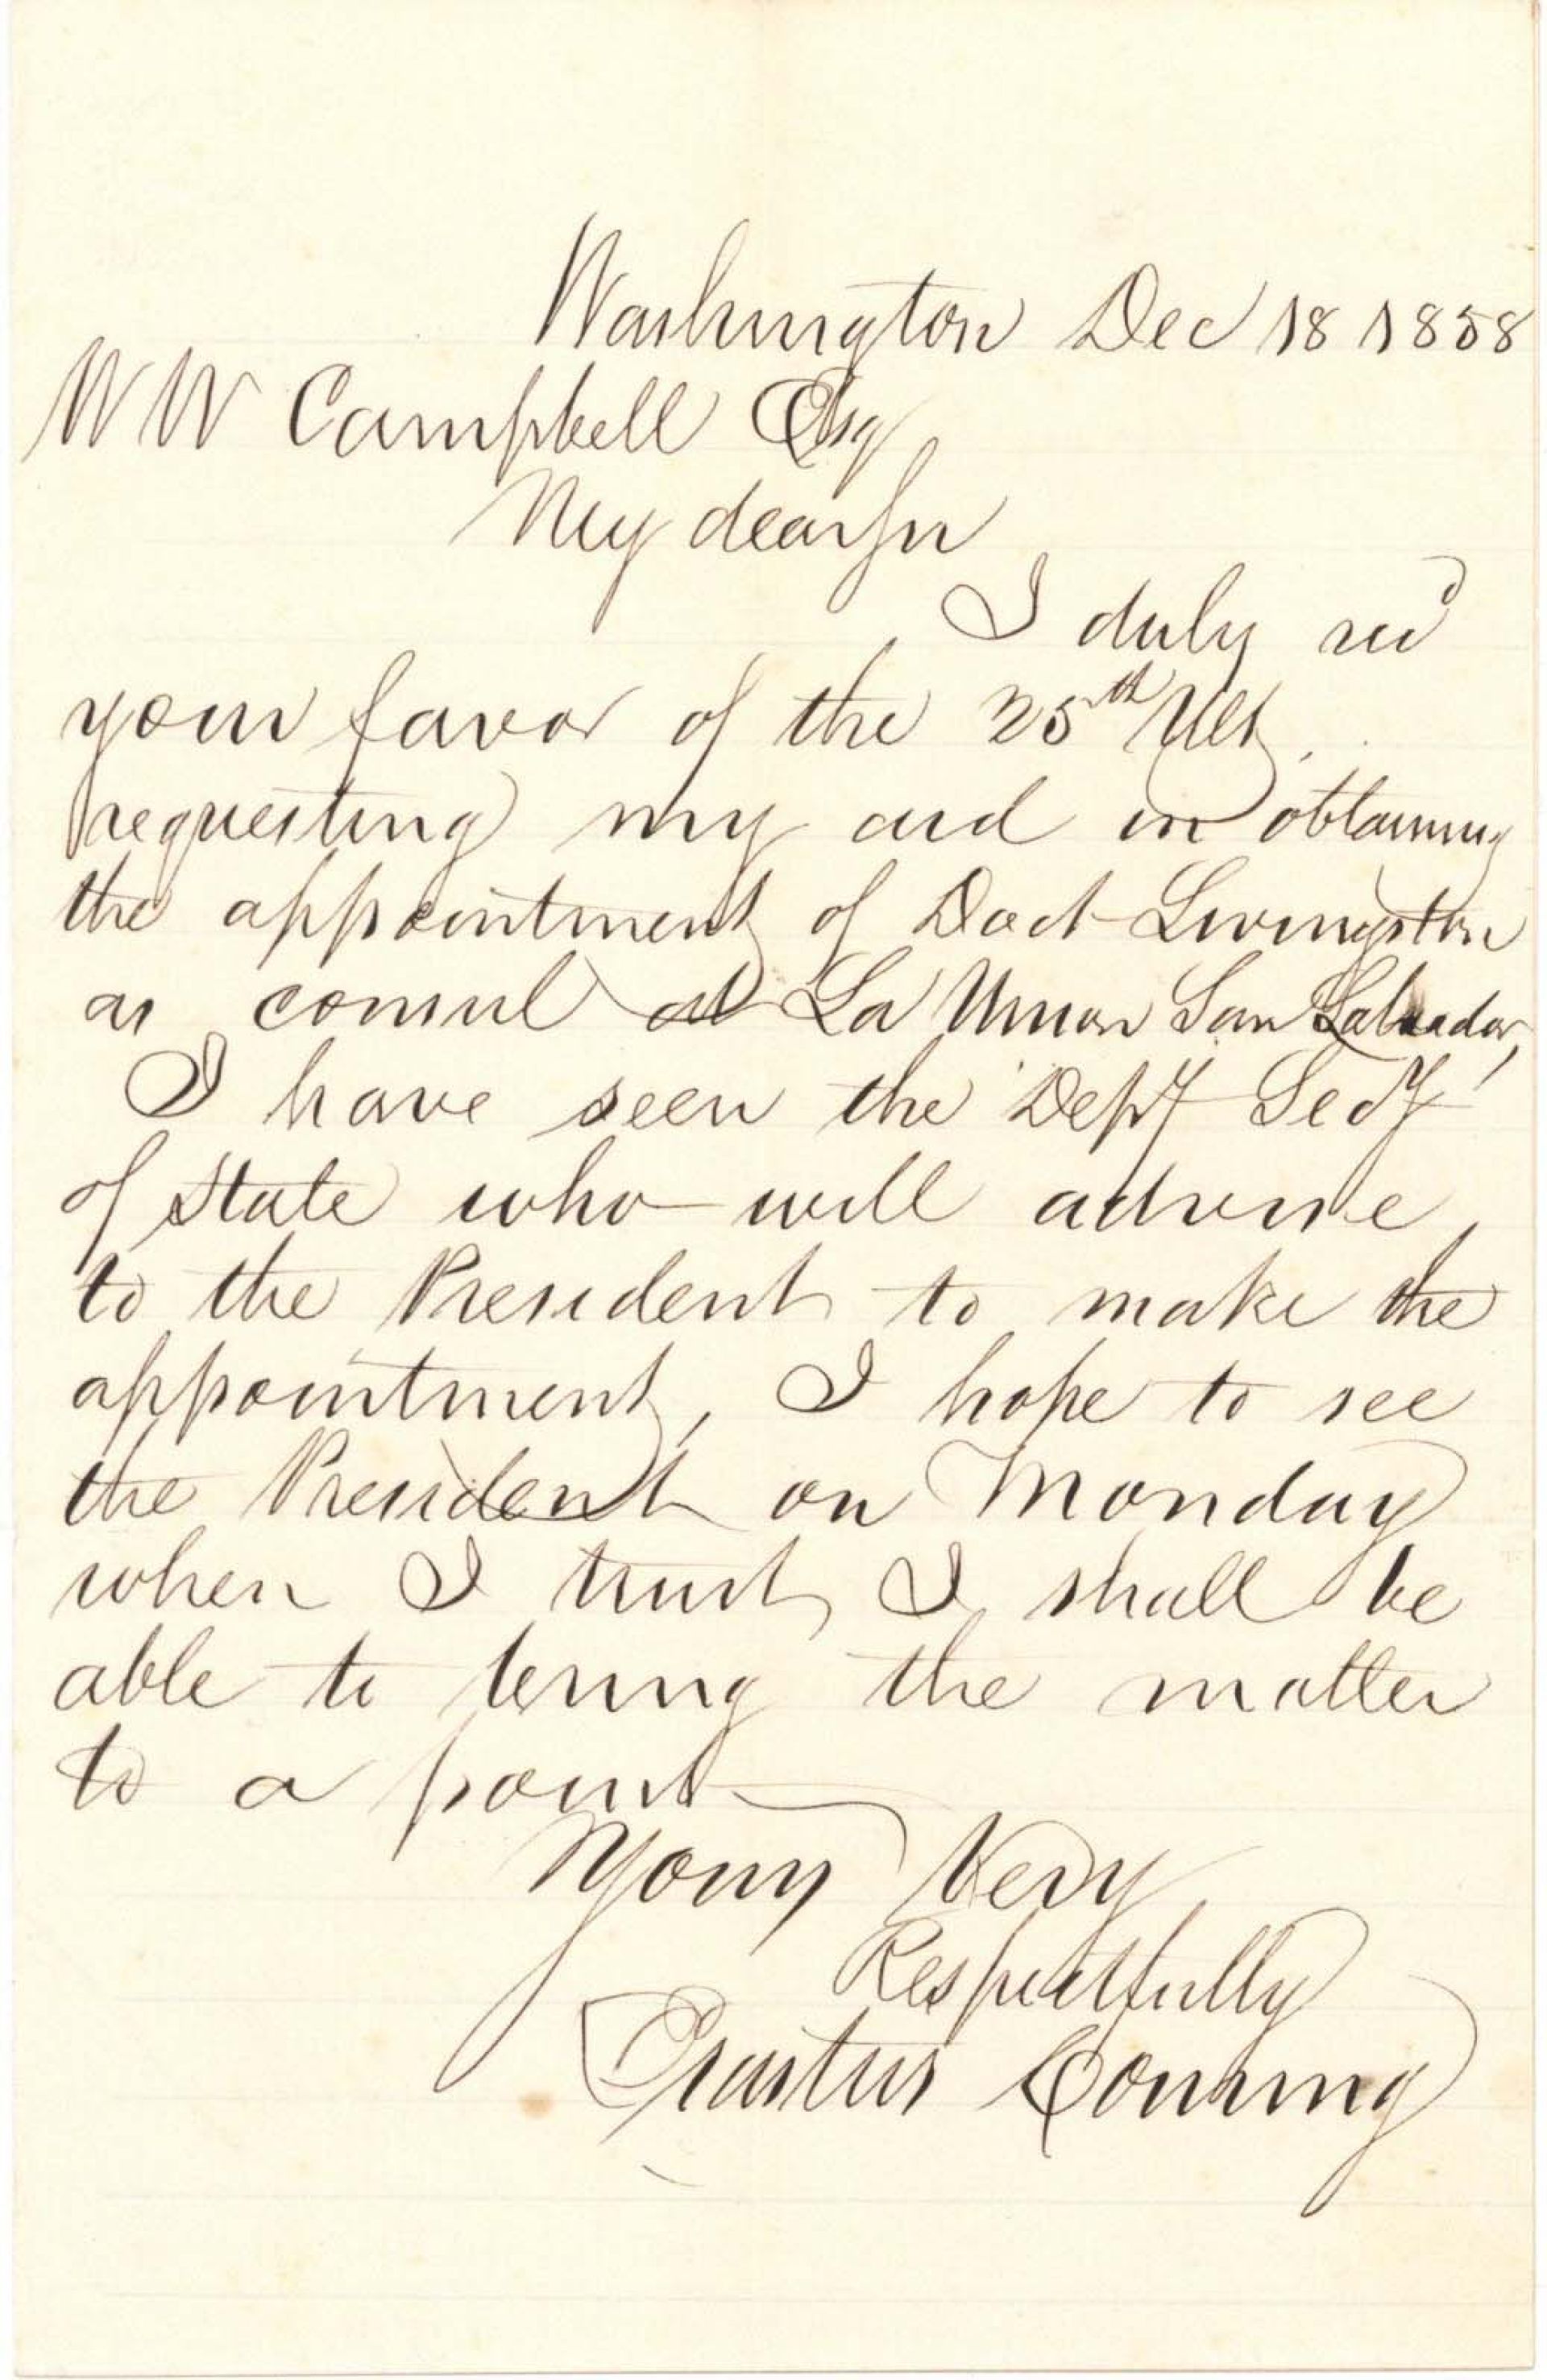 Washington Dec 18 1858
W W Campbell Esq
My dear Sir
I duly recd
your favor of the 25th Ult.
requesting my aid in obtaining
the appointment of Doct Livingston
as consul at La Union San Salvador,
I have seen the Depy Secy
of State who will advise
to the President to make the
appointment, I hope to see
the President on Monday
when I trust I shall be
able to bring the matter
to a point
Yours Very
Respectfully
Erastus Corning